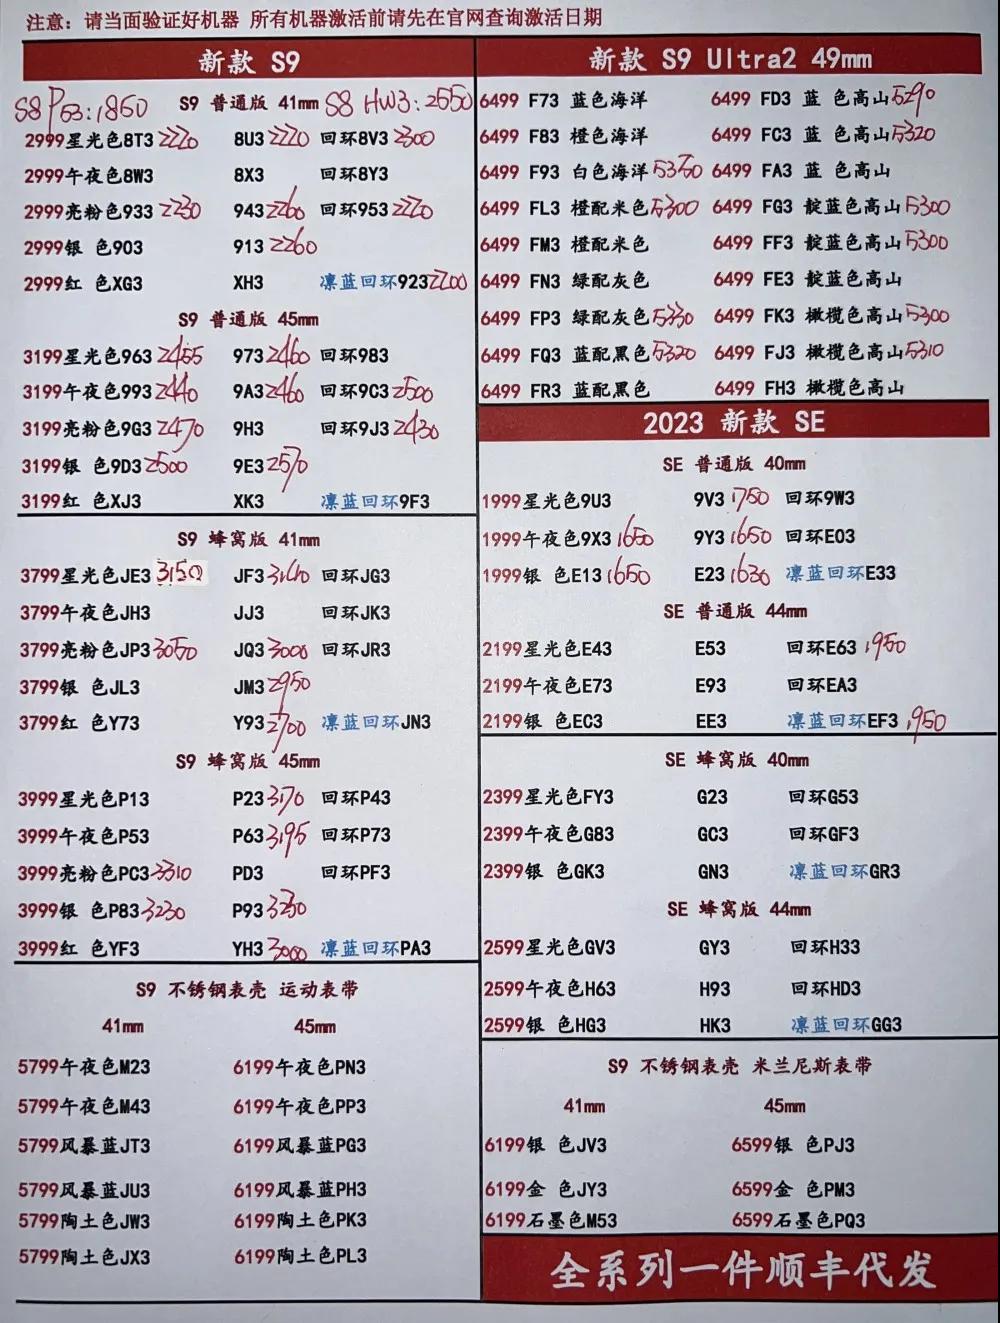 注意: 请当面验证好机器 所有机器激活前请先在官网查询激活日期
新款 S9
S8 P63:1850 S9 普通版 41mm S8 HW3:2550
2999星光色8T3 2220 8U3 2220 回环8V3 2300
2999午夜色8W3 8X3 回环8Y3
2999亮粉色933 2230 943 2260 回环953 2220
2999银 色903 913 2260
2999红 色XG3 XH3 凛蓝回环923 2200
S9 普通版 45mm
3199星光色963 2455 973 2460 回环983
3199午夜色993 2440 9A3 2460 回环9C3 2500
3199亮粉色9G3 2470 9H3 回环9J3 2430
3199银 色9D3 2500 9E3 2570
3199红 色XJ3 XK3 凛蓝回环9F3
S9 蜂窝版 41mm
3799星光色JE3 3150 JF3 3140 回环JG3
3799午夜色JH3 JJ3 回环JK3
3799亮粉色JP3 3050 JQ3 3000 回环JR3
3799银 色JL3 JM3 2950
3799红 色Y73 Y93 2700 凛蓝回环JN3
S9 蜂窝版 45mm
3999星光色P13 P23 3170 回环P43
3999午夜色P53 P63 3195 回环P73
3999亮粉色PC3 3310 PD3 回环PF3
3999银 色P83 3230 P93 3230
3999红 色YF3 YH3 3000 凛蓝回环PA3
S9 不锈钢表壳 运动表带
41mm 45mm
5799午夜色M23 6199午夜色PN3
5799午夜色M43 6199午夜色PP3
5799风暴蓝JT3 6199风暴蓝PG3
5799风暴蓝JU3 6199风暴蓝PH3
5799陶土色JW3 6199陶土色PK3
5799陶土色JX3 6199陶土色PL3
新款 S9 Ultra2 49mm
6499 F73 蓝色海洋 6499 FD3 蓝 色高山 5290
6499 F83 橙色海洋 6499 FC3 蓝 色高山 5320
6499 F93 白色海洋 5350 6499 FA3 蓝 色高山
6499 FL3 橙配米色 5300 6499 FG3 靛蓝色高山 5300
6499 FM3 橙配米色 6499 FF3 靛蓝色高山 5300
6499 FN3 绿配灰色 6499 FE3 靛蓝色高山
6499 FP3 绿配灰色 5330 6499 FK3 橄榄色高山 5300
6499 FQ3 蓝配黑色 5320 6499 FJ3 橄榄色高山 5310
6499 FR3 蓝配黑色 6499 FH3 橄榄色高山
2023 新款 SE
SE 普通版 40mm
1999星光色9U3 9V3 1750 回环9W3
1999午夜色9X3 1650 9Y3 1650 回环E03
1999银 色E13 1650 E23 1630 凛蓝回环E33
SE 普通版 44mm
2199星光色E43 E53 回环E63 1950
2199午夜色E73 E93 回环EA3
2199银 色EC3 EE3 凛蓝回环EF3 1950
SE 蜂窝版 40mm
2399星光色FY3 G23 回环G53
2399午夜色G83 GC3 回环GF3
2399银 色GK3 GN3 凛蓝回环GR3
SE 蜂窝版 44mm
2599星光色GV3 GY3 回环H33
2599午夜色H63 H93 回环HD3
2599银 色HG3 HK3 凛蓝回环GG3
S9 不锈钢表壳 米兰尼斯表带
41mm 45mm
6199银 色JV3 6599银 色PJ3
6199金 色JY3 6599金 色PM3
6199石墨色M53 6599石墨色PQ3
全系列一件顺丰代发